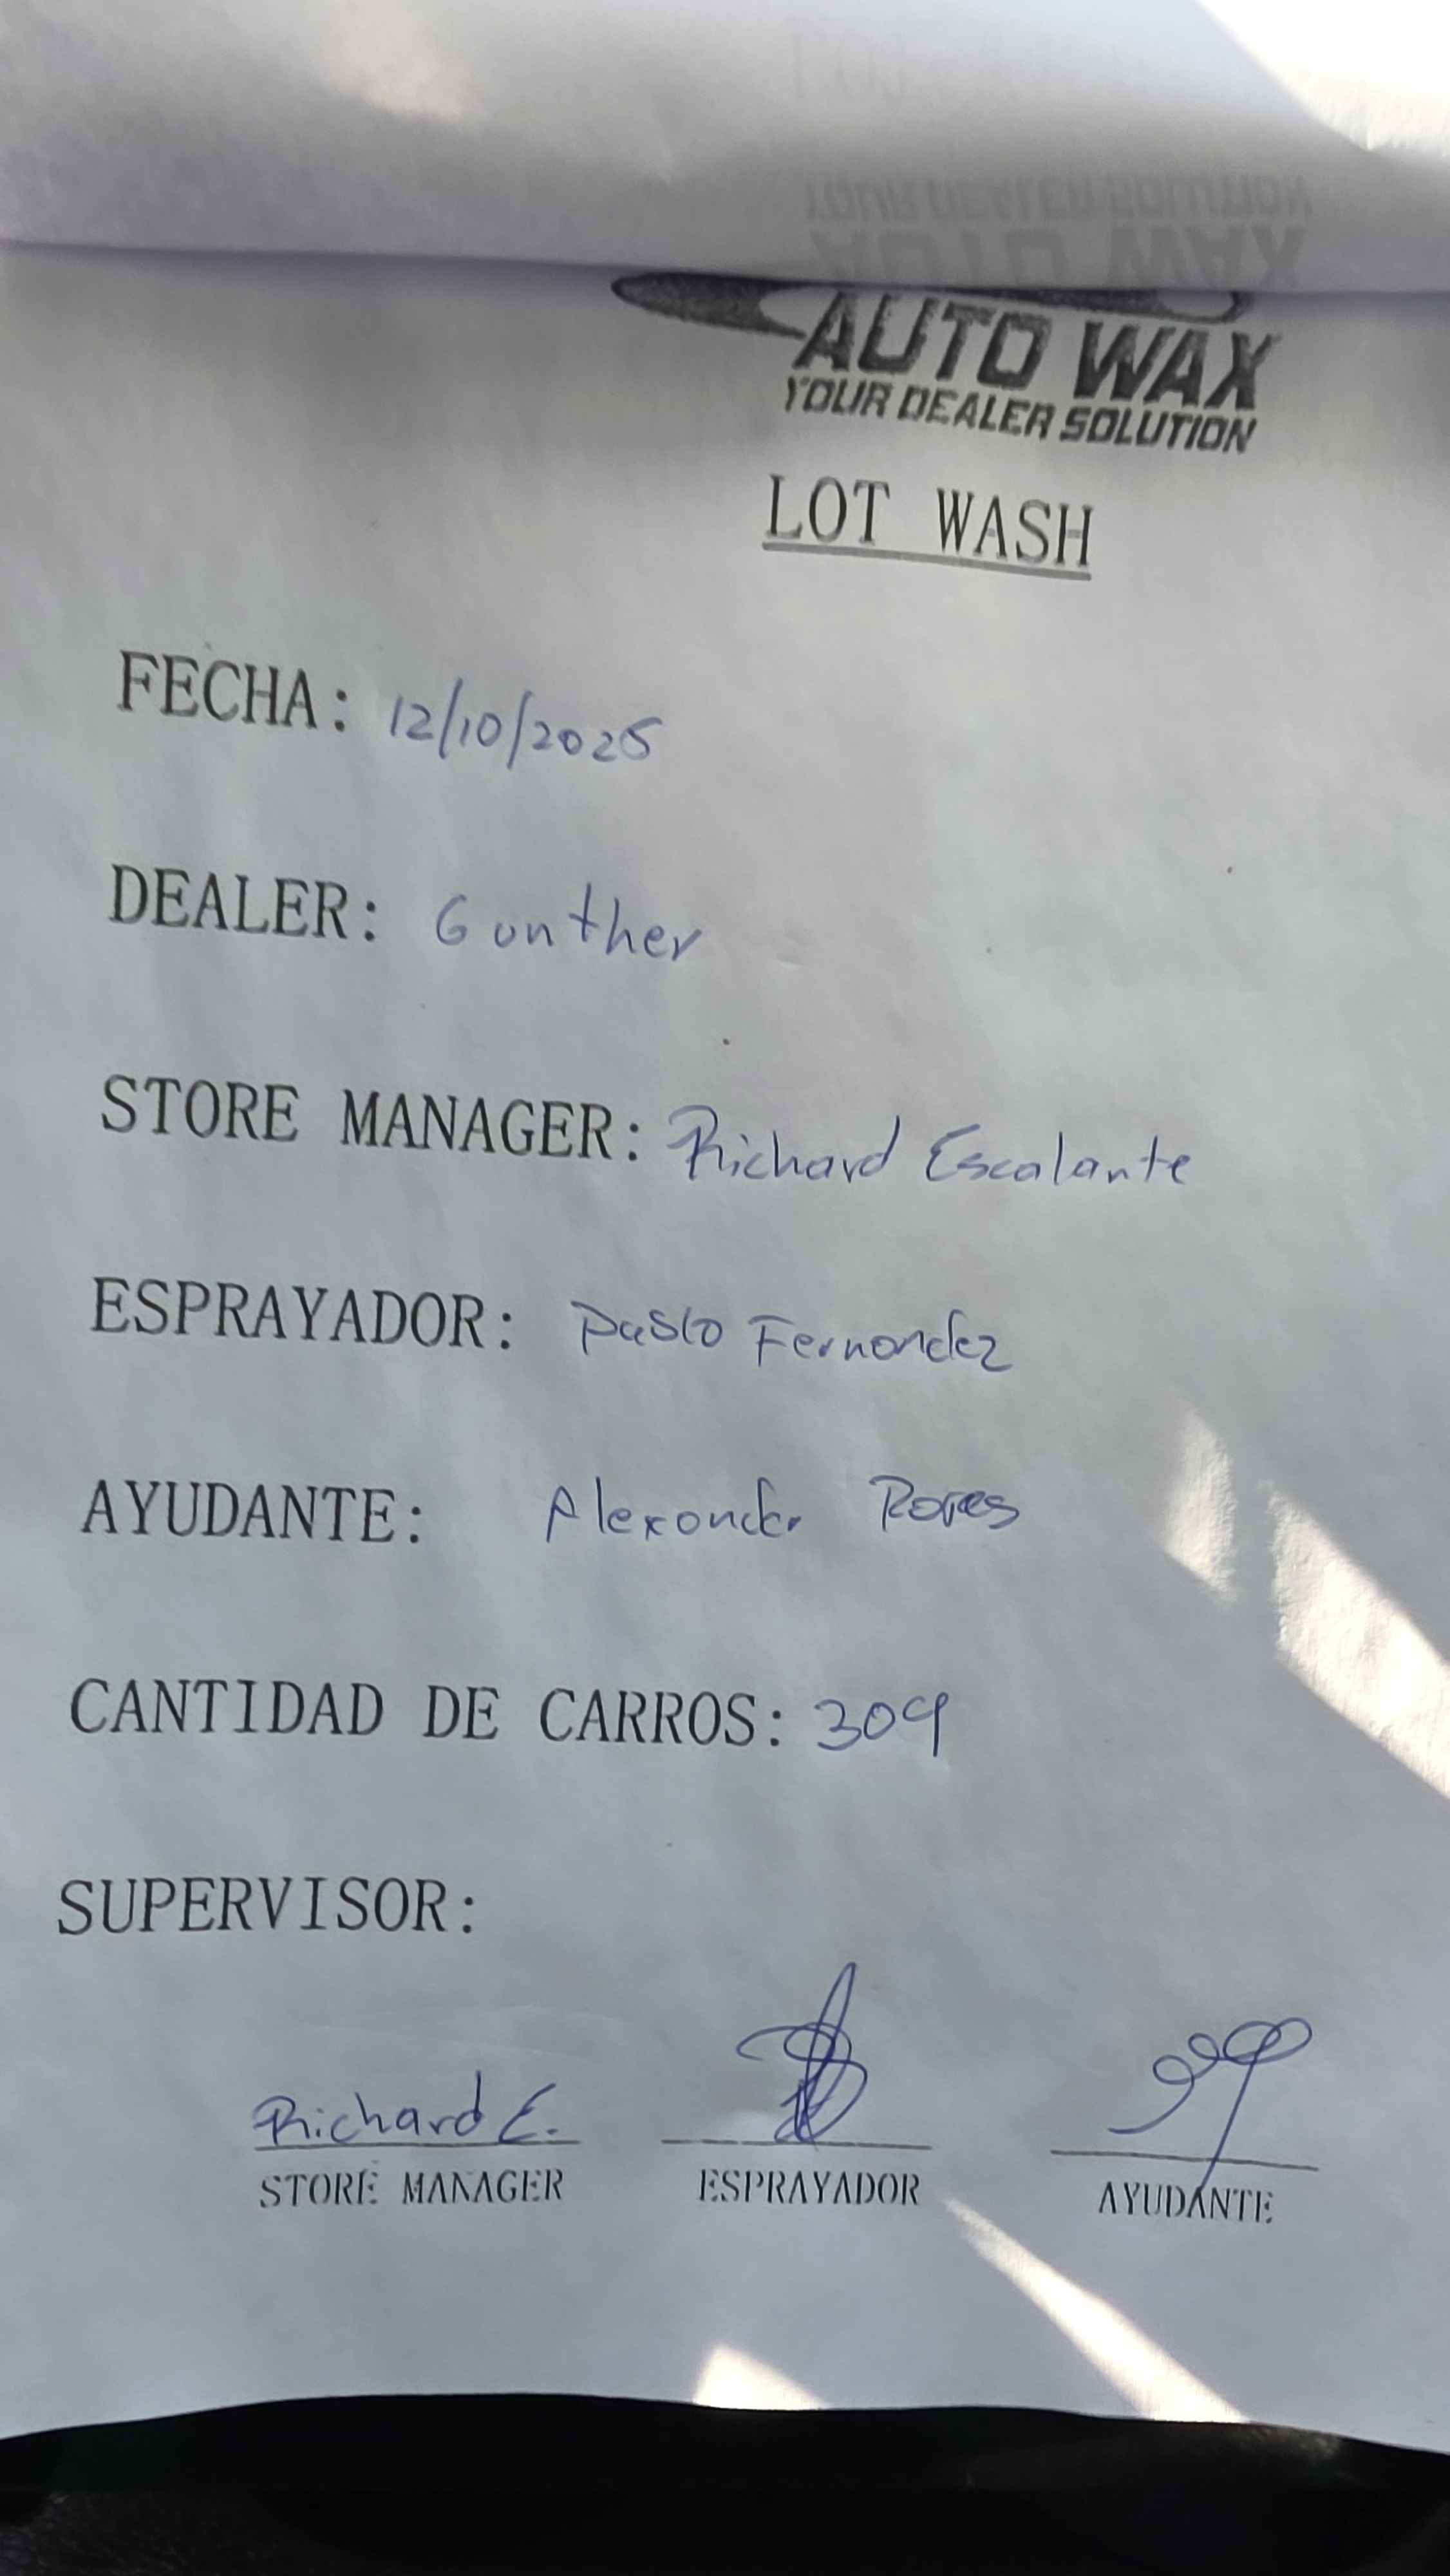 AUTO WAX
YOUR DEALER SOLUTION
LOT WASH
FECHA: 12/10/2025
DEALER: Gunther
STORE MANAGER: Richard Escalante
ESPRAYADOR: Pablo Fernandez
AYUDANTE: Alexander
CANTIDAD DE CARROS: 309
SUPERVISOR:
Richard E.
STORE MANAGER ESPRAYADOR AYUDANTE